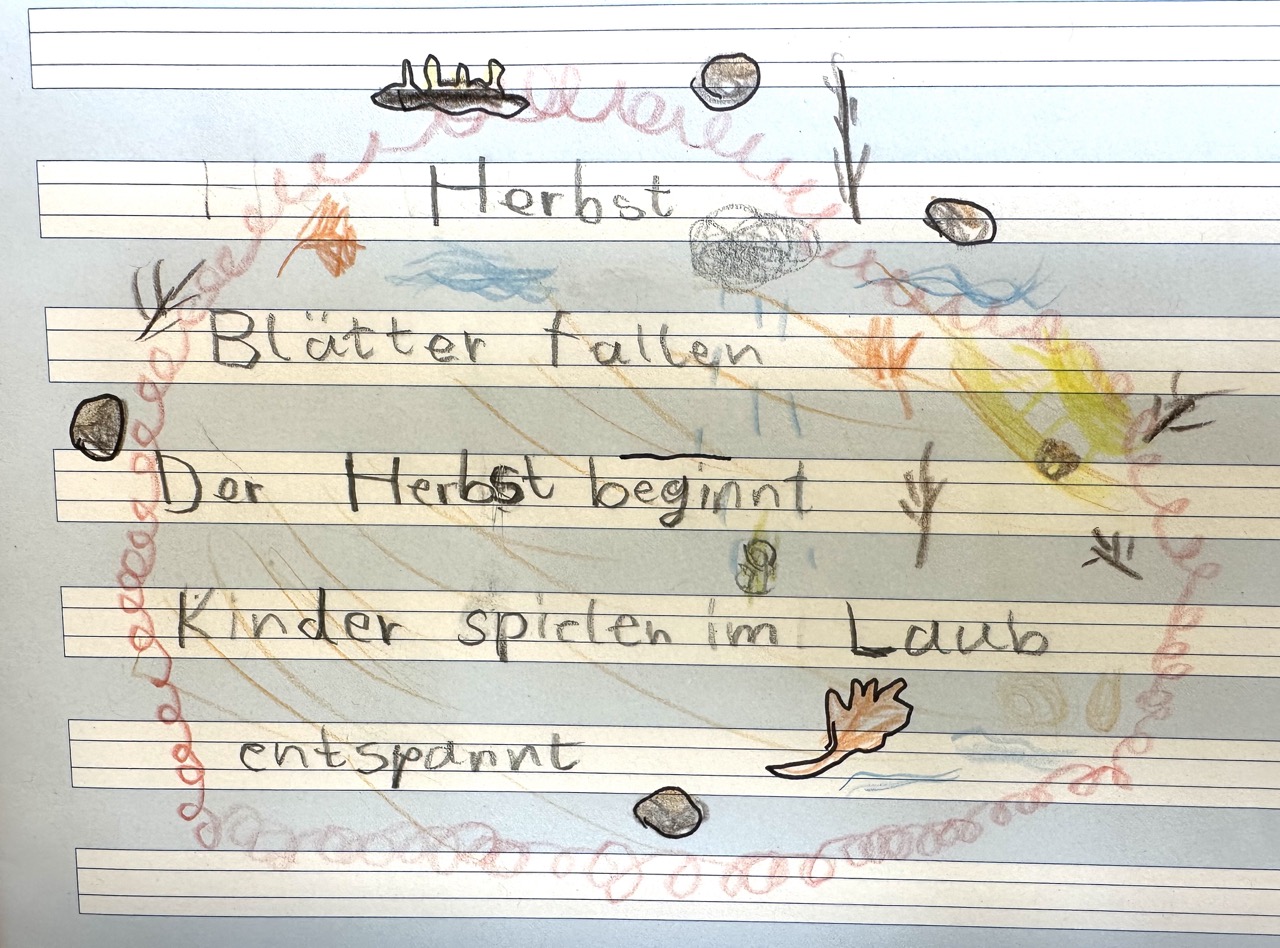 Herbst
Blätter fallen
Der Herbst beginnt
Kinder spielen im Laub
entspannt